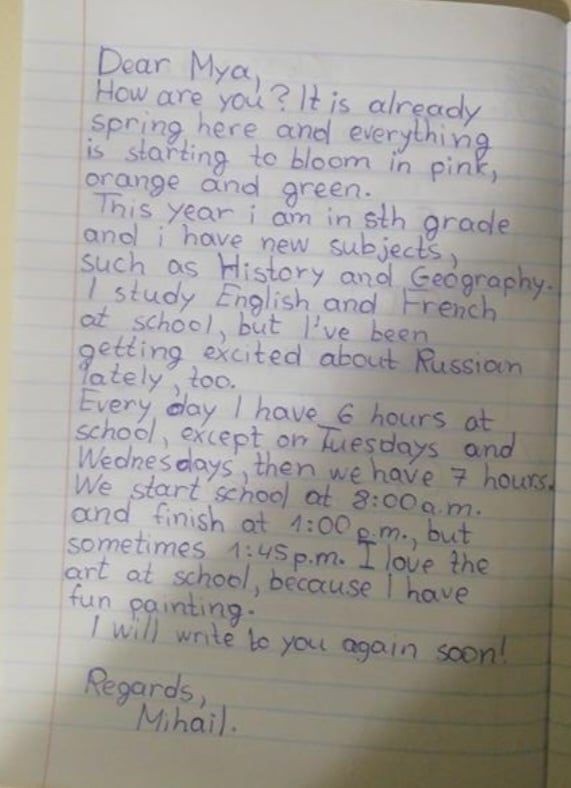 Dear Mya,
How are you? It is already
spring here and everything
is starting to bloom in pink,
orange and green.
This year i am in 5th grade
and i have new subjects,
such as History and Geography.
I study English and French
at school, but I've been
getting excited about Russian
lately, too.
Every day I have 6 hours at
school, except on Tuesdays and
Wednesdays, then we have 7 hours.
We start school at 8:00 a.m.
and finish at 1:00 p.m., but
sometimes 1:45 p.m. I love the
art at school, because I have
fun painting.
I will write to you again soon!
Regards,
Mihail.